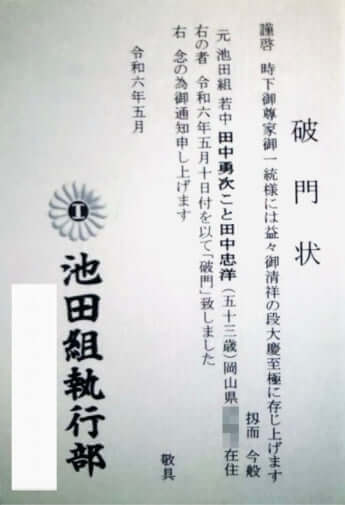 破門状
謹啓 時下御尊家御一統様には益々御清祥の段大慶至極に存じ上げます
扨而 今般
元 池田組 若中 田中勇次こと田中忠洋(五十三歳)岡山県 在住
右の者 令和六年五月十日付を以て「破門」致しました
右 念の為御通知申し上げます
敬具
令和六年五月
池田組執行部